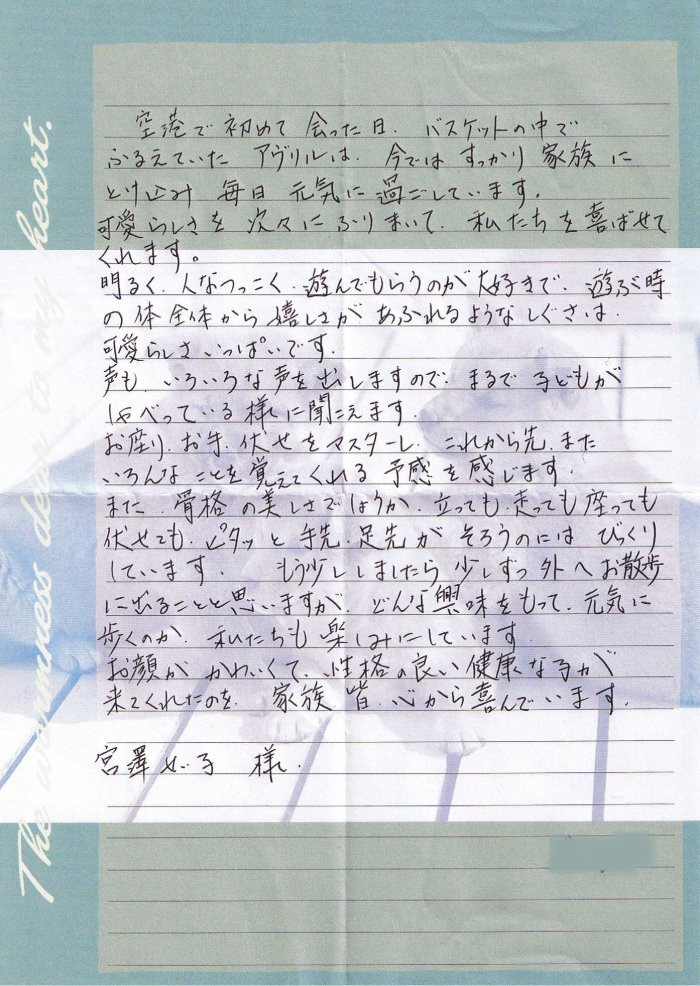 The warmness dear to my heart.
空港で初めて会った日、バスケットの中で
ふるえていたアヴリルは、今ではすっかり家族に
とけ込み毎日元気に過ごしています。
可愛らしさを次々にふりまいて、私たちを喜ばせて
くれます。
明るく、人なつっこく、遊んでもらうのが大好きで、遊ぶ時
の体全体から嬉しさがあふれるようなしぐさは、
可愛らしさいっぱいです。
声も、いろいろな声を出しますので、まるで子どもが
しゃべっている様に聞こえます。
お座り、お手、伏せをマスターし、これから先、また
いろんなことを覚えてくれる予感を感じます。
また、骨格の美しさでしょうか、立っても、走っても座っても
伏せても、ピタッと手先、足先がそろうのにはびっくり
しています。 もう少ししましたら少しずつ外へお散歩
に出ることと思いますが、どんな興味をもって、元気に
歩くのか、私たちも楽しみにしています
お顔がかわいくて、性格の良い健康な子が
来てくれたのを、家族皆、心から喜んでいます。
宮澤 子 様